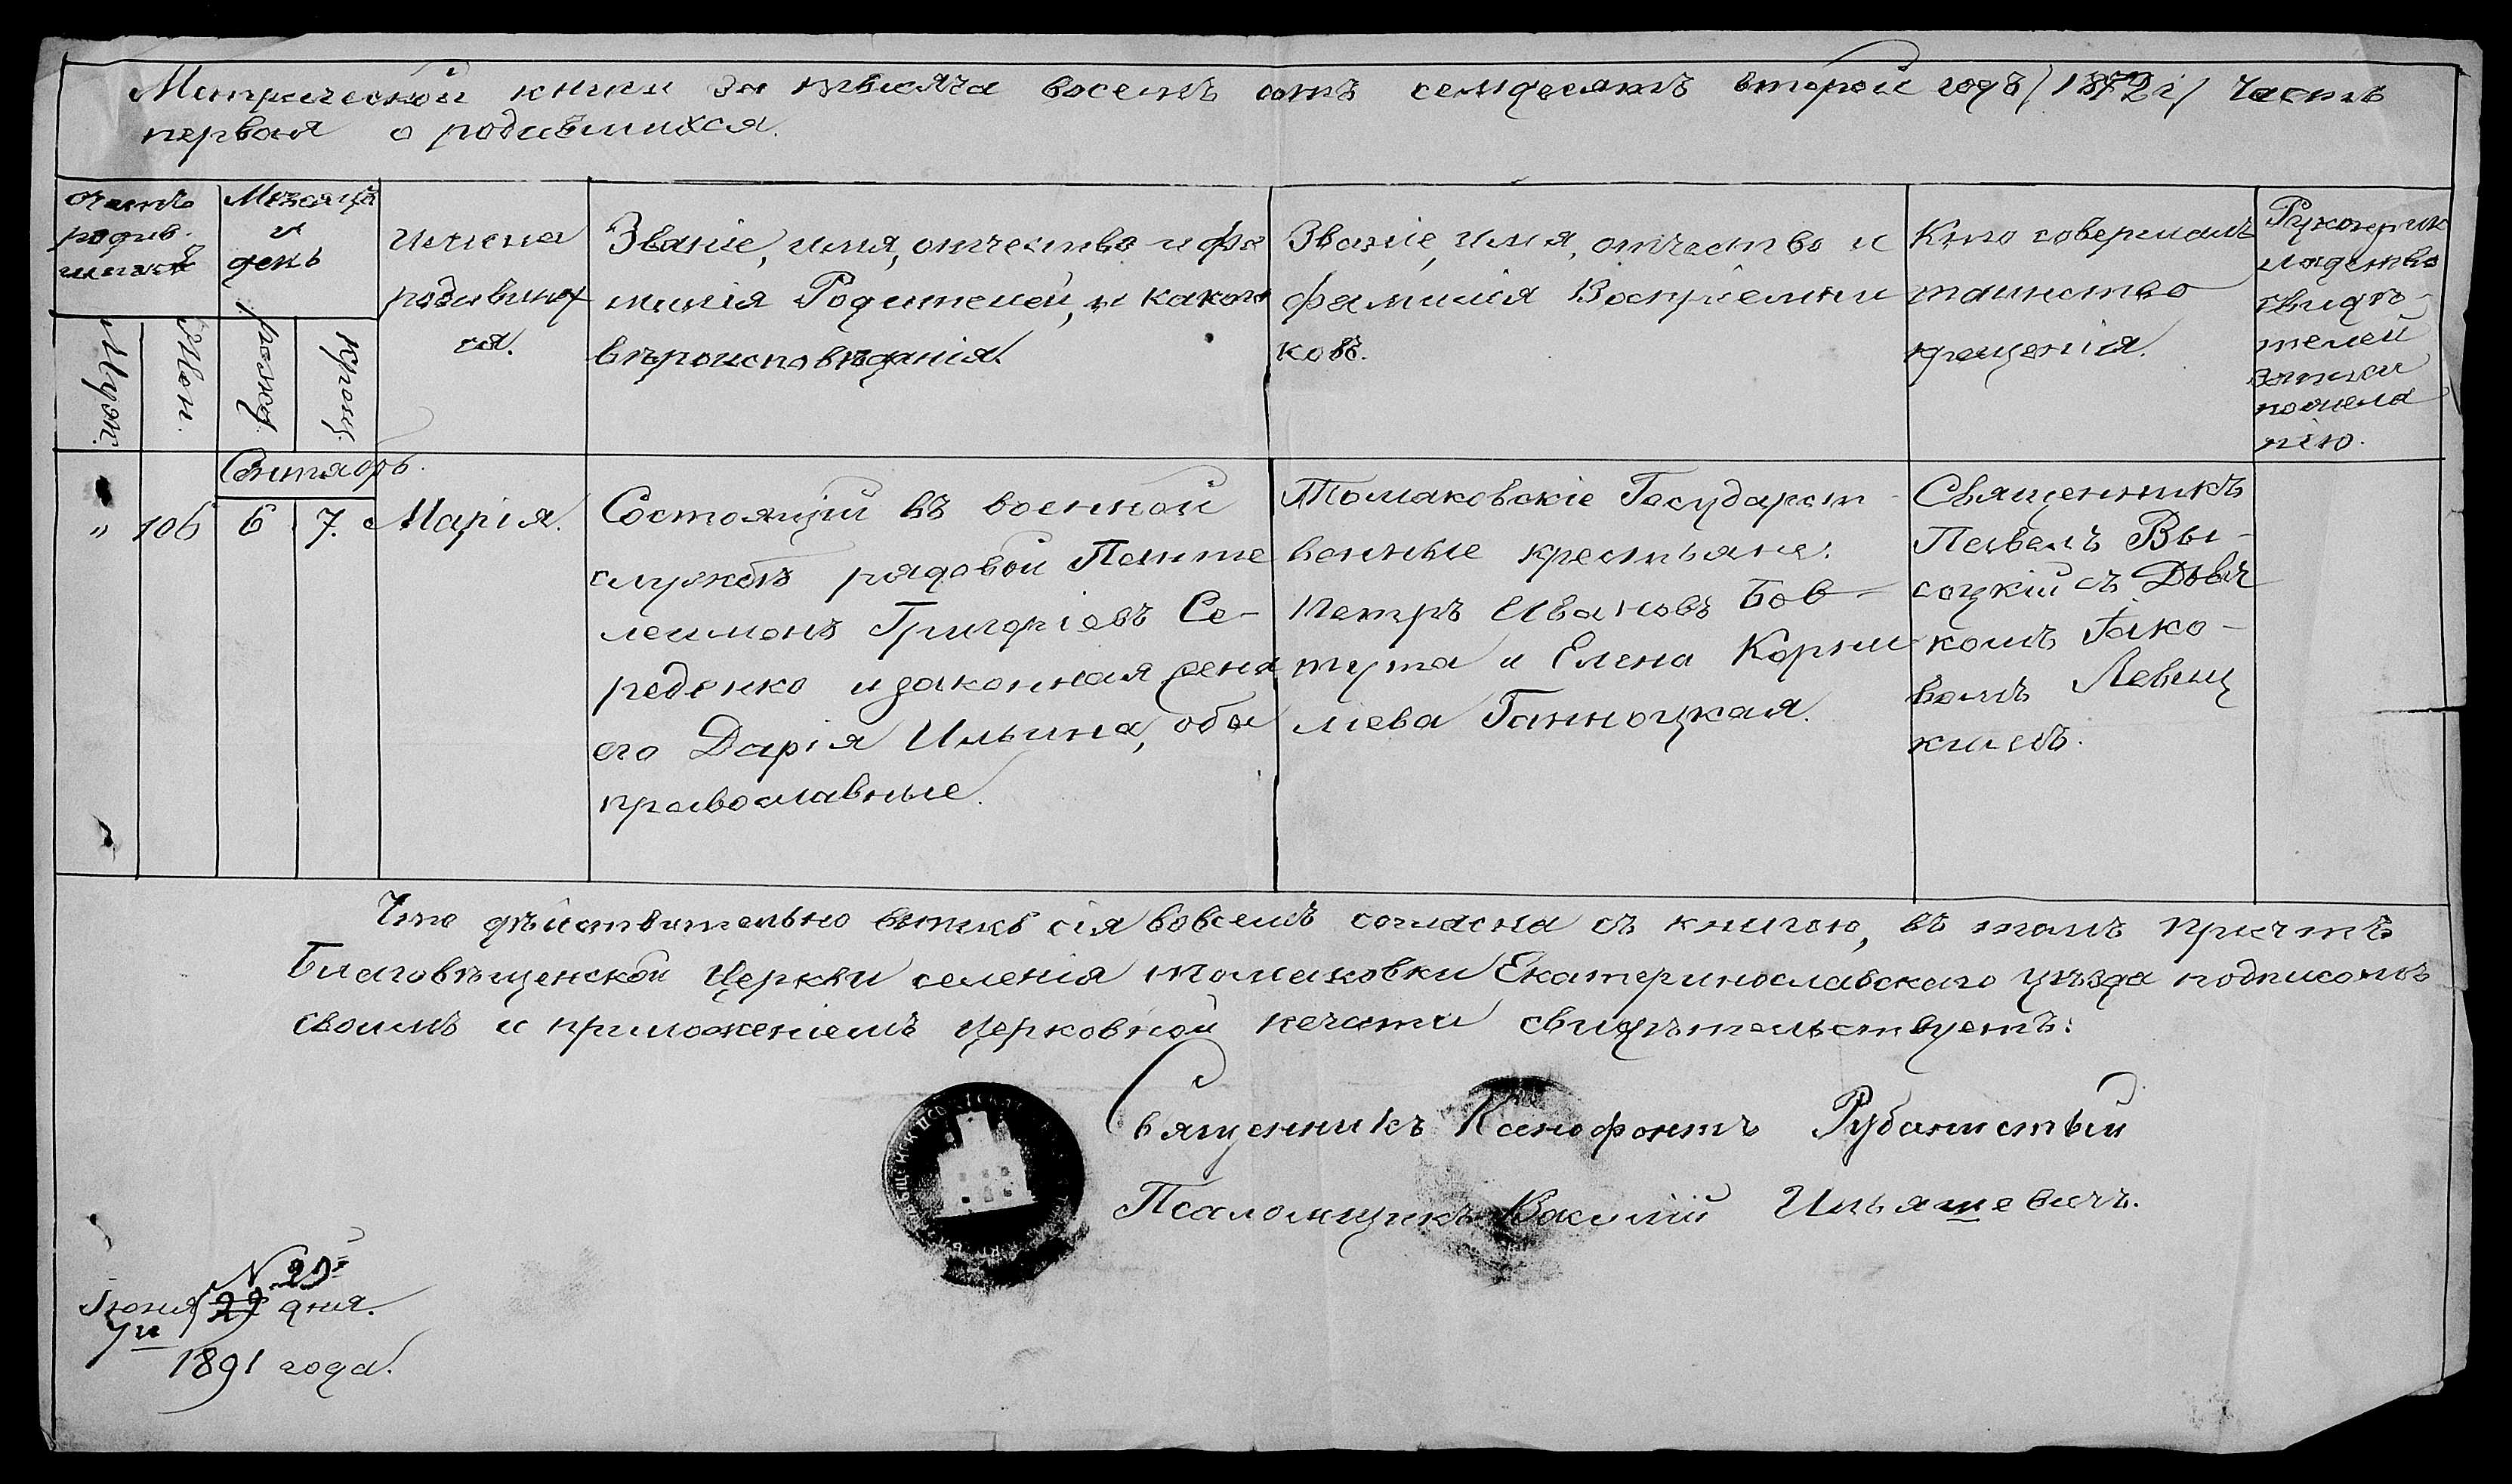 Метрической книги за тысяча восемь сотъ семдесятъ второй годъ /1872 г/ Часть
первая о родившихся.
Счетъ
родив-
шихся
Муж.
Жен.
Мѣсяцъ
и
день
рожд.
крещ.
Имена
родивших
ся.
Званіе, имя, отчество и фа
милія Родителей, и какого
вѣроисповѣданія.
Званіе, имя, отчество и
фамилія Воспріемни
ковъ.
Кто совершалъ
таинство
крещенія.
Рукоприк
ладство
свидѣ-
телей
записи
по жела
нію.
Сентябрь.
"
106
6
7.
Марія.
Состоящій въ военной
службѣ рядовой Панте
леимонъ Григоріевъ Се-
реденко и законная жена
его Дарія Ильина, оба
православные.
Томаковскіе Государст
венные крестьяне:
Петръ Ивановъ Бов-
тута и Елена Корни
ліева Ганноцкая.
Священникъ
Павелъ Вы-
соцкій съ Дьяч
комъ Яко-
вомъ Левиц
кимъ.
Что дѣйствительно выпись сія вовсемъ согласна съ книгою, въ томъ причтъ
Благовѣщенской Церкви селенія Томаковки Екатеринославскаго уѣзда подписомъ
своимъ и приложеніемъ церковной печати свидѣтельствуетъ:
Священникъ Ксенофонтъ
Псаломщикъ Василій Ильяшевичъ.
N 29
Іюня 29 дня.
7го
1891 года.